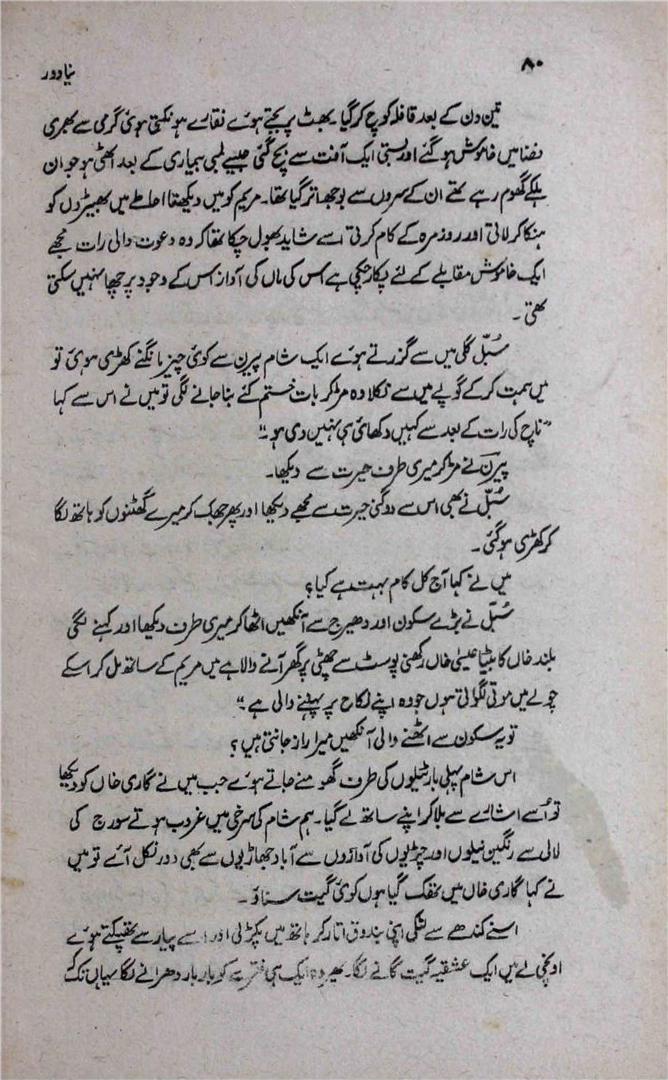 ۸۰
نیا دور
تین دن کے بعد قافلہ کوچ کر گیا۔ بھٹ پر بجتے ہوئے نقارے ہونکتی ہوئی گرمی سے بھری
فضا میں خاموش ہو گئے اور بستی ایک آفت سے بچ گئی جیسے لمبی بیماری کے بعد اٹھی ہو جوان
ہلکے گھوم رہے تھے ان کے سروں سے بوجھ اتر گیا تھا۔ مریم کو میں دیکھتا احاطے میں بھیڑوں کو
ہنکا کر لاتی اور روزمرہ کے کام کرتی اسے شاید بھول چکا تھا کہ وہ دعوت والی رات مجھے
ایک خاموش مقابلے کے لئے پکار چکی ہے اس کی ماں کی آواز اس کے وجود پر چھا نہیں سکتی
تھی۔
سُبّل گلی میں سے گزرتے ہوئے ایک شام پیرن سے کوئی چیز مانگنے کھڑی ہوئی تو
میں ہمت کر کے گوپے میں سے نکلا وہ مڑ کر بات ختم کئے بنا جانے لگی تو میں نے اس سے کہا
"ناچ کی رات کے بعد سے کہیں دکھائی ہی نہیں دی ہو۔"
پیرن نے مڑ کر میری طرف حیرت سے دیکھا۔
سُبّل نے بھی اس سے دوگنی حیرت سے مجھے دیکھا اور پھر جھک کر میرے گھٹنوں کو ہاتھ لگا
کر کھڑی ہو گئی۔
میں نے کہا آج کل کام بہت ہے کیا؟
سُبّل نے بڑے سکون اور دھیرج سے آنکھیں اٹھا کر میری طرف دیکھا اور کہنے لگی
بلند خاں کا بیٹا عیسیٰ خاں رکھنی پوسٹ سے چھٹی پر گھر آنے والا ہے میں مریم کے ساتھ مل کر اسکے
چولے میں موتی لگواتی ہوں جو وہ اپنے نکاح پر پہننے والی ہے۔"
تو یہ سکون سے اٹھنے والی آنکھیں میرا راز جانتی ہیں؟
اس شام پہلی بار ٹیلوں کی طرف گھومنے جاتے ہوئے جب میں نے گاری خاں کو دیکھا
تو اُسے اشارے سے بلا کر اپنے ساتھ لے گیا۔ ہم شام کی سرخی میں غروب ہوتے سورج کی
لالی سے رنگین ٹیلوں اور چڑیوں کی آوازوں سے آباد جھاڑیوں سے بھی دور نکل آئے تو میں
نے کہا گاری خاں میں تھک گیا ہوں کوئی گیت سناؤ۔
اسنے کندھے سے لٹکی اپنی بندوق اتار کر ہاتھ میں پکڑ لی اور اسے پیار سے تھپکتے ہوئے
اونچی لے میں ایک عشقیہ گیت گانے لگا۔ پھر وہ ایک ہی فقرے کو بار بار دھرانے لگا یہاں تک کہ